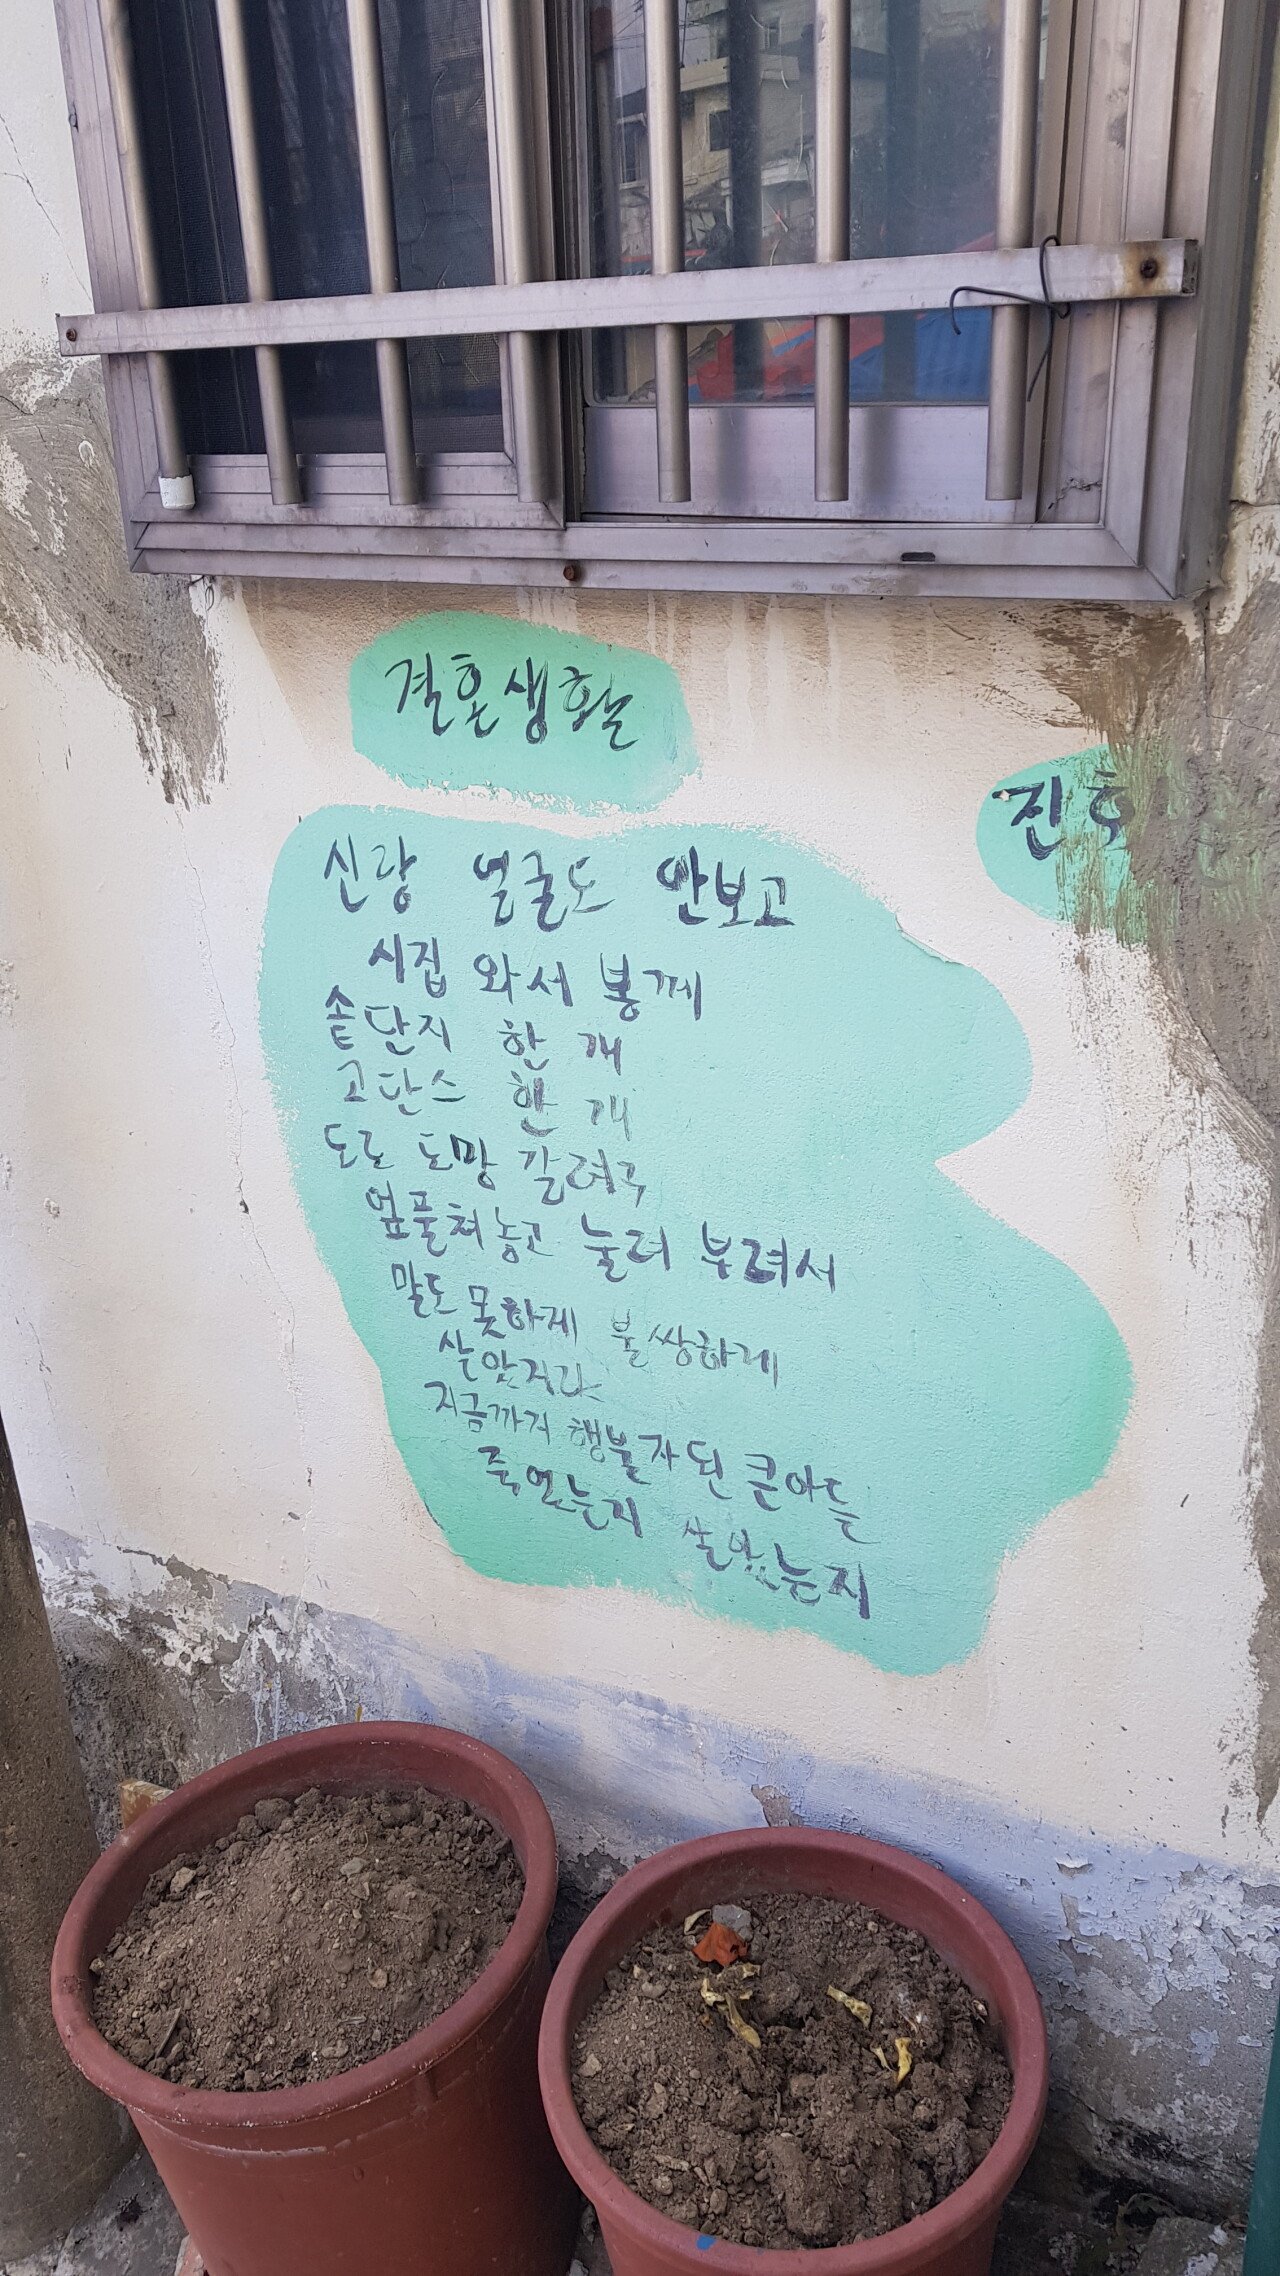 결혼생활
신랑 얼굴도 안보고
시집 와서 봉께
솥단지 한 개
고단스 한 개
도로 도망 갈려구
엎풀쳐놓고 눌러 부려서
말도 못하게 불쌍하게
살았지라
지금까지 행불자된 큰아들
죽었는지 살았는지
진